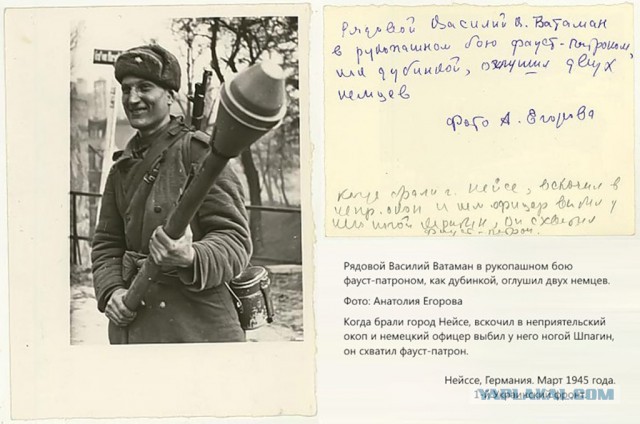 Рядовой Василий В. Ватаман
в рукопашном бою фауст-патроном,
как дубинкой, оглушил двух
немцев
Фото А. Егорова
когда брали г. Нейсе, вскочил в
непр. окоп и нем. офицер выбил у
него ногой Шпагин, он схватил
фауст-патрон.
Рядовой Василий Ватаман в рукопашном бою
фауст-патроном, как дубинкой, оглушил двух немцев.
Фото: Анатолия Егорова
Когда брали город Нейсе, вскочил в неприятельский
окоп и немецкий офицер выбил у него ногой Шпагин,
он схватил фауст-патрон.
Нейссе, Германия. Март 1945 года.
1-й Украинский фронт
YAPLAKAL.COM